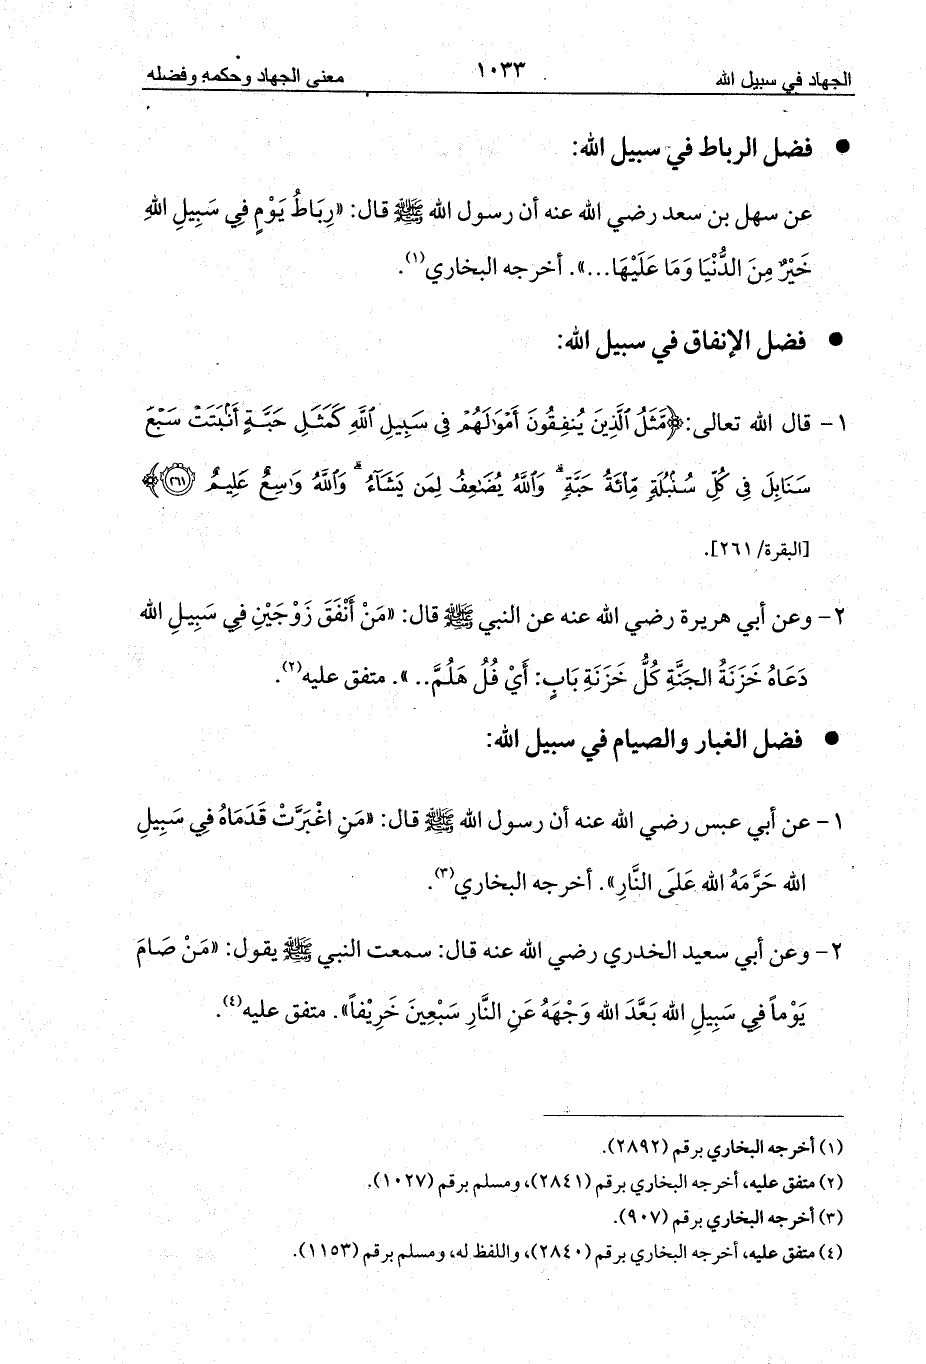 الجهاد في سبيل الله ١٠٣٣ معنى الجهاد وحكمه وفضله
● فضل الرباط في سبيل الله:
عن سهل بن سعد رضي الله عنه أن رسول الله ﷺ قال: «رِبَاطُ يَوْمٍ فِي سَبِيلِ اللهِ
خَيْرٌ مِنَ الدُّنْيَا وَمَا عَلَيْهَا...». أخرجه البخاري(١).
● فضل الإنفاق في سبيل الله:
١- قال الله تعالى: ﴿مَّثَلُ ٱلَّذِينَ يُنفِقُونَ أَمْوَٰلَهُمْ فِى سَبِيلِ ٱللَّهِ كَمَثَلِ حَبَّةٍ أَنۢبَتَتْ سَبْعَ
سَنَابِلَ فِى كُلِّ سُنۢبُلَةٍ مِّا۟ئَةُ حَبَّةٍ ۗ وَٱللَّهُ يُضَٰعِفُ لِمَن يَشَآءُ ۗ وَٱللَّهُ وَٰسِعٌ عَلِيمٌ ۝٢٦١﴾
[البقرة/ ٢٦١].
٢- وعن أبي هريرة رضي الله عنه عن النبي ﷺ قال: «مَنْ أَنْفَقَ زَوْجَيْنِ فِي سَبِيلِ الله
دَعَاهُ خَزَنَةُ الجَنَّةِ كُلُّ خَزَنَةِ بَابٍ: أَيْ فُلُ هَلُمَّ.. ». متفق عليه(٢).
● فضل الغبار والصيام في سبيل الله:
١- عن أبي عبس رضي الله عنه أن رسول الله ﷺ قال: «مَنِ اغْبَرَّتْ قَدَمَاهُ فِي سَبِيلِ
الله حَرَّمَهُ الله عَلَى النَّارِ». أخرجه البخاري(٣).
٢- وعن أبي سعيد الخدري رضي الله عنه قال: سمعت النبي ﷺ يقول: «مَنْ صَامَ
يَوْماً فِي سَبِيلِ الله بَعَّدَ الله وَجْهَهُ عَنِ النَّارِ سَبْعِينَ خَرِيْفاً». متفق عليه(٤).
(١) أخرجه البخاري برقم (٢٨٩٢).
(٢) متفق عليه، أخرجه البخاري برقم (٢٨٤١)، ومسلم برقم (١٠٢٧).
(٣) أخرجه البخاري برقم (٩٠٧).
(٤) متفق عليه، أخرجه البخاري برقم (٢٨٤٠)، واللفظ له، ومسلم برقم (١١٥٣).